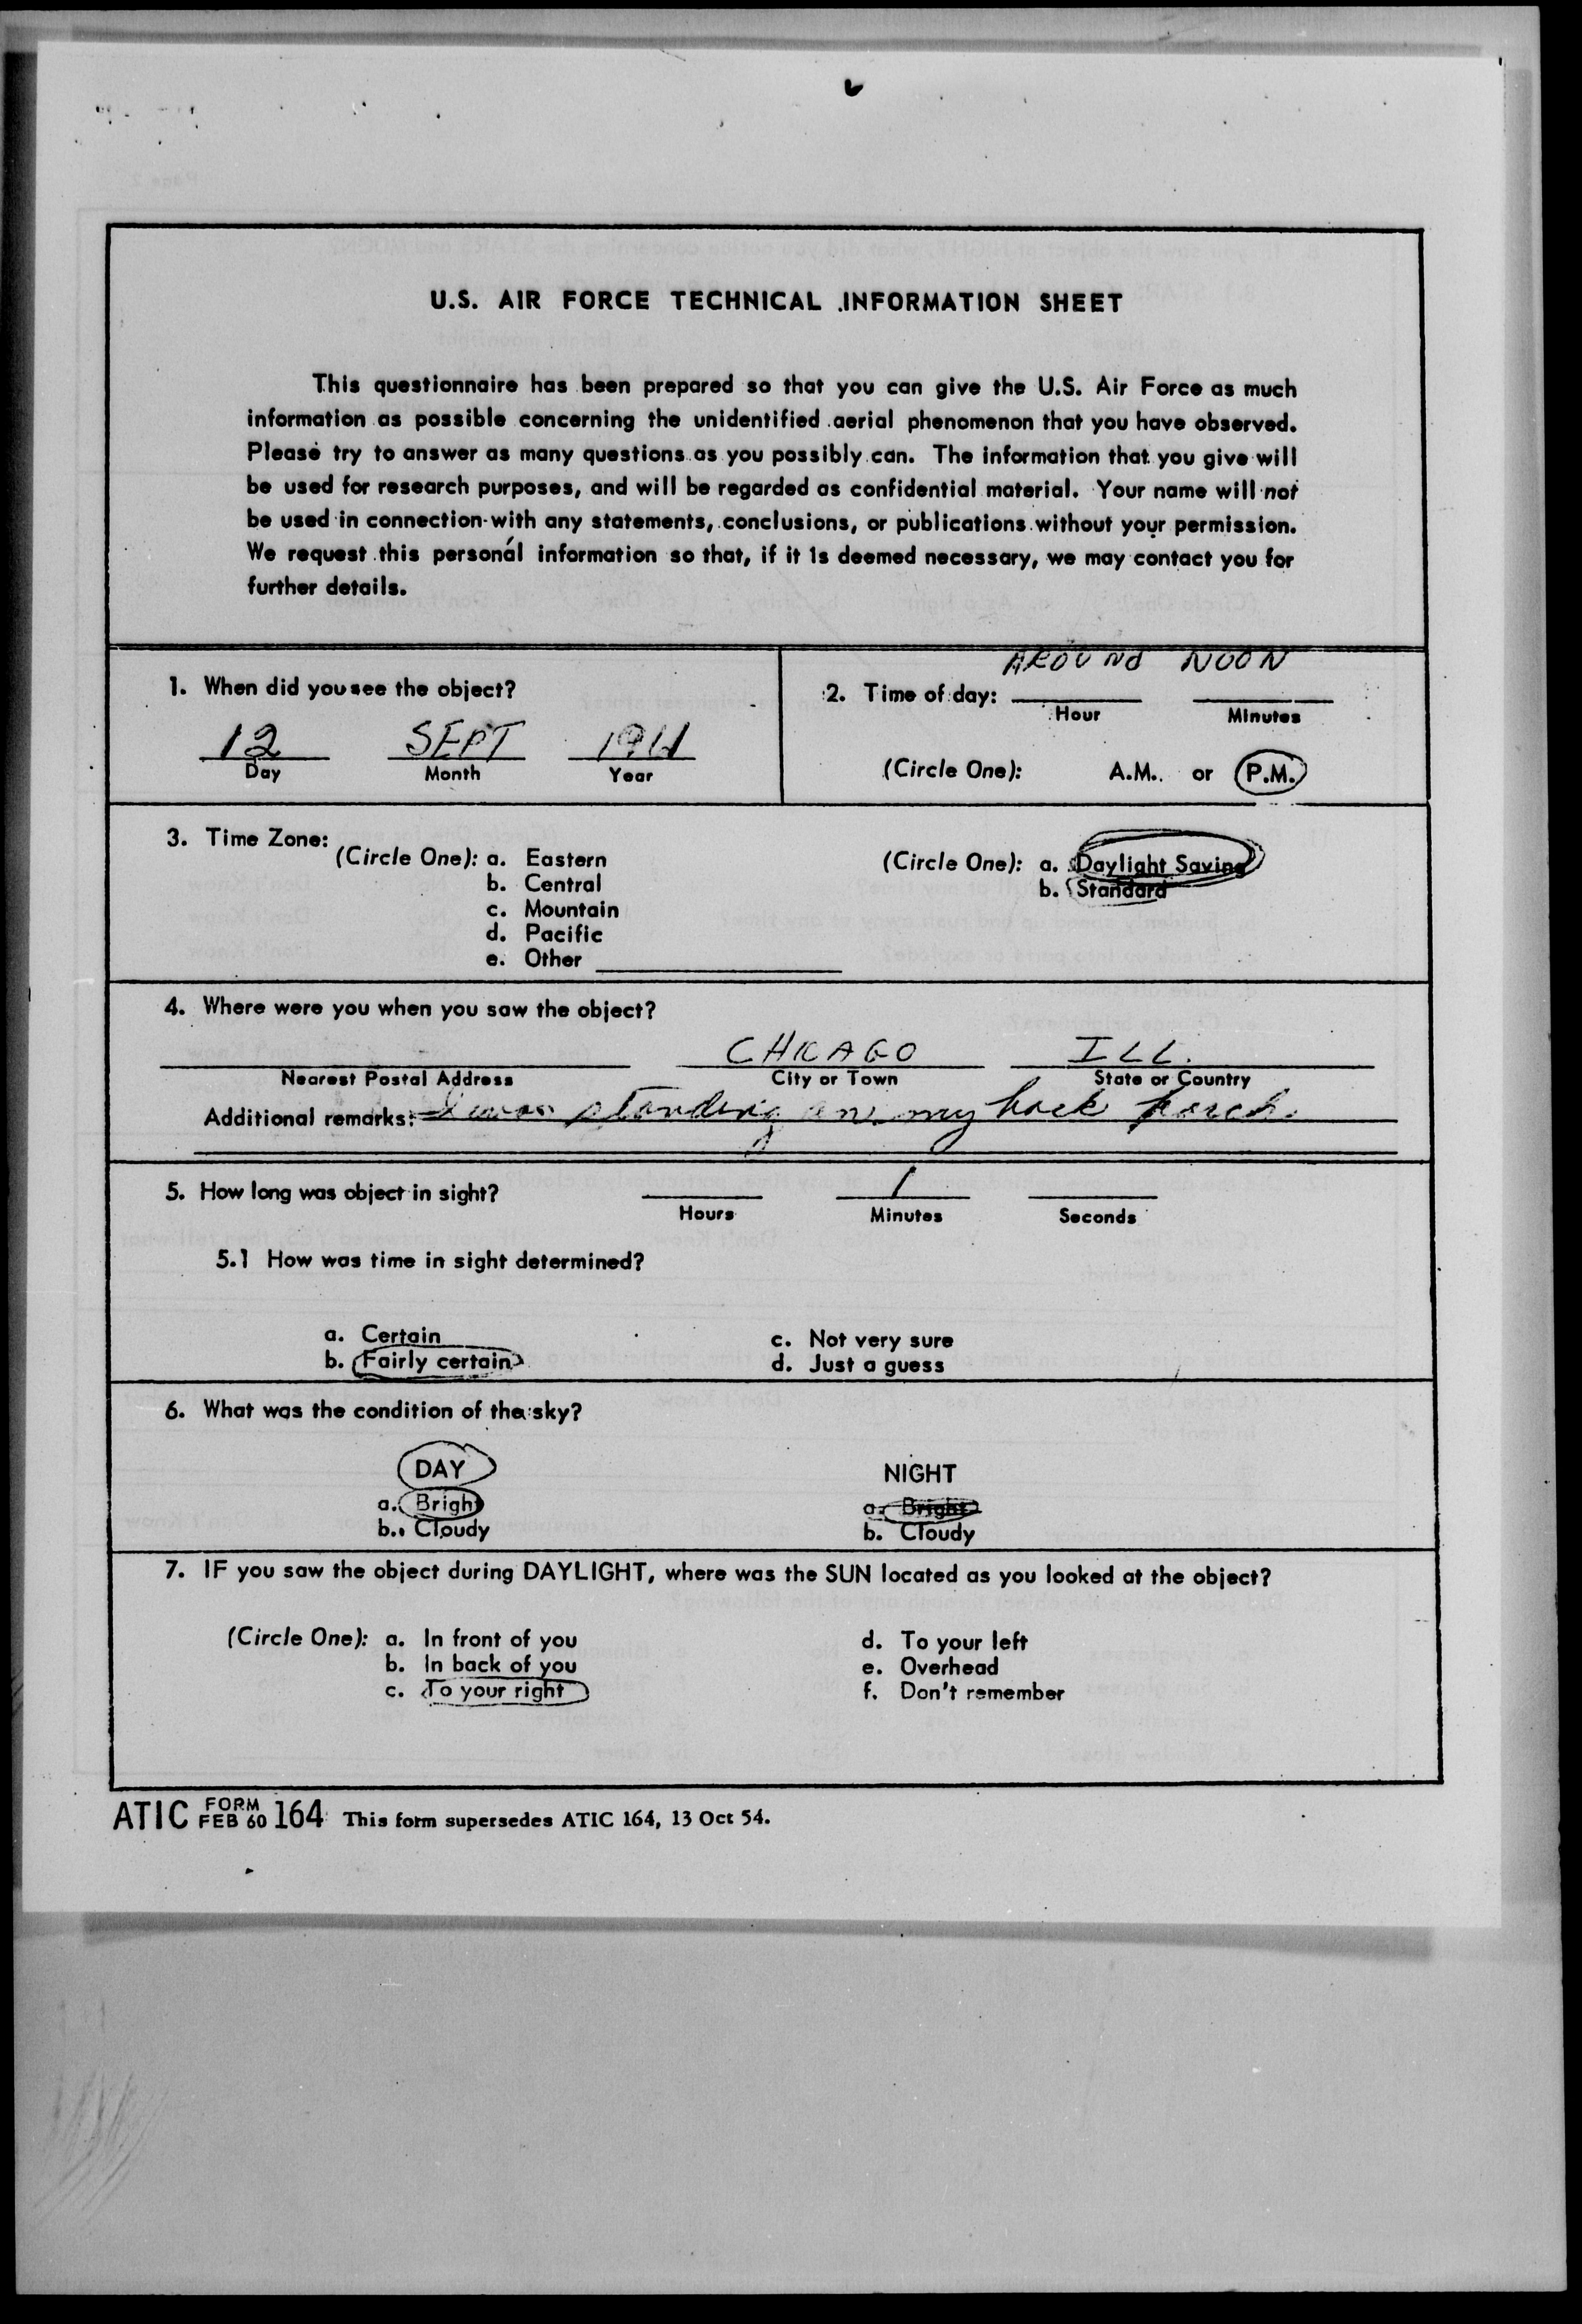 U.S. AIR FORCE TECHNICAL INFORMATION SHEET
This questionnaire has been prepared so that you can give the U.S. Air Force as much
information as possible concerning the unidentified aerial phenomenon that you have observed.
Please try to answer as many questions as you possibly can. The information that you give will
be used for research purposes, and will be regarded as confidential material. Your name will not
be used in connection with any statements, conclusions, or publications without your permission.
We request this personal information so that, if it is deemed necessary, we may contact you for
further details.
1. When did you see the object?
12 SEPT 1961
Day Month Year
AROUND NOON
2. Time of day:
Hour Minutes
(Circle One): A.M. or P.M.
3. Time Zone:
(Circle One): a. Eastern
b. Central
c. Mountain
d. Pacific
e. Other
(Circle One): a. Daylight Saving
b. Standard
4. Where were you when you saw the object?
CHICAGO ILL.
Nearest Postal Address City or Town State or Country
Additional remarks: I was standing on my back porch.
5. How long was object in sight? 1
Hours Minutes Seconds
5.1 How was time in sight determined?
a. Certain c. Not very sure
b. Fairly certain d. Just a guess
6. What was the condition of the sky?
DAY NIGHT
a. Bright a. Bright
b. Cloudy b. Cloudy
7. IF you saw the object during DAYLIGHT, where was the SUN located as you looked at the object?
(Circle One): a. In front of you d. To your left
b. In back of you e. Overhead
c. To your right f. Don't remember
ATIC FORM FEB 60 164 This form supersedes ATIC 164, 13 Oct 54.